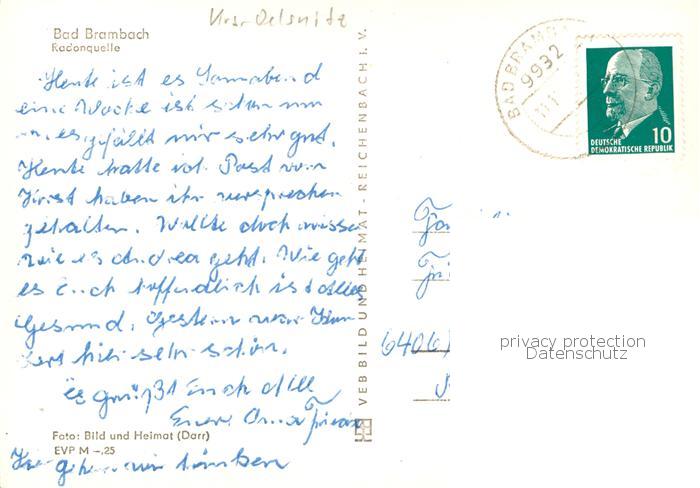 Bad Brambach
Radonquelle
Heute ist es Sonnabend
eine Woche ist schon um
es gefällt mir sehr gut.
Heute hatte ich Post von
Horst haben ihr versprechen
gehalten. Wollte doch wissen
wie es Andrea geht. Wie geht
es Euch hoffendlich ist alles
Gesund. Gestern war Kon
zert hier sehr schön.
Es grüßt Euch alle
Eure Oma
Foto: Bild und Heimat (Darr)
EVP M –.25
gehen wir
VEB BILD UND HEIMAT - REICHENBACH I. V.
BAD BRAMB
9932
DEUTSCHE
DEMOKRATISCHE REPUBLIK
10
6406
privacy protection
Datenschutz